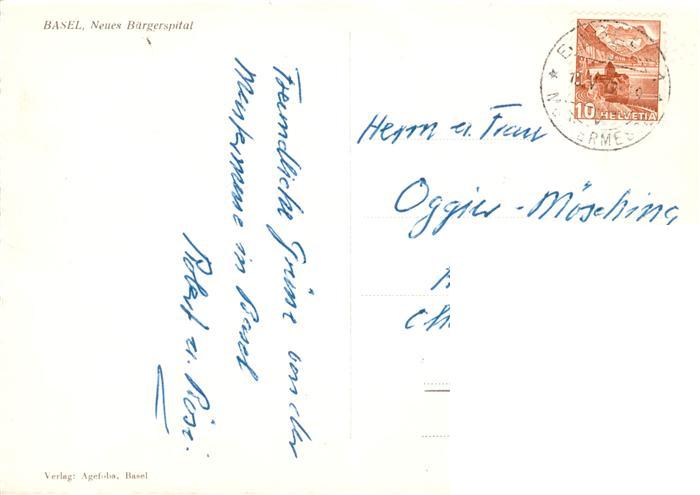 BASEL, Neues Bürgerspital
Freundliche Grüsse von der
Mustermesse in Basel
Robert u. Rösi.
Herrn u. Frau
Oggier-Mösching
Ch
10 HELVETIA
Verlag: Agefoba, Basel